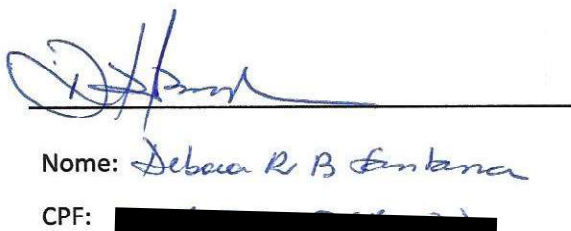 Nome: Debora R B Santana
CPF: